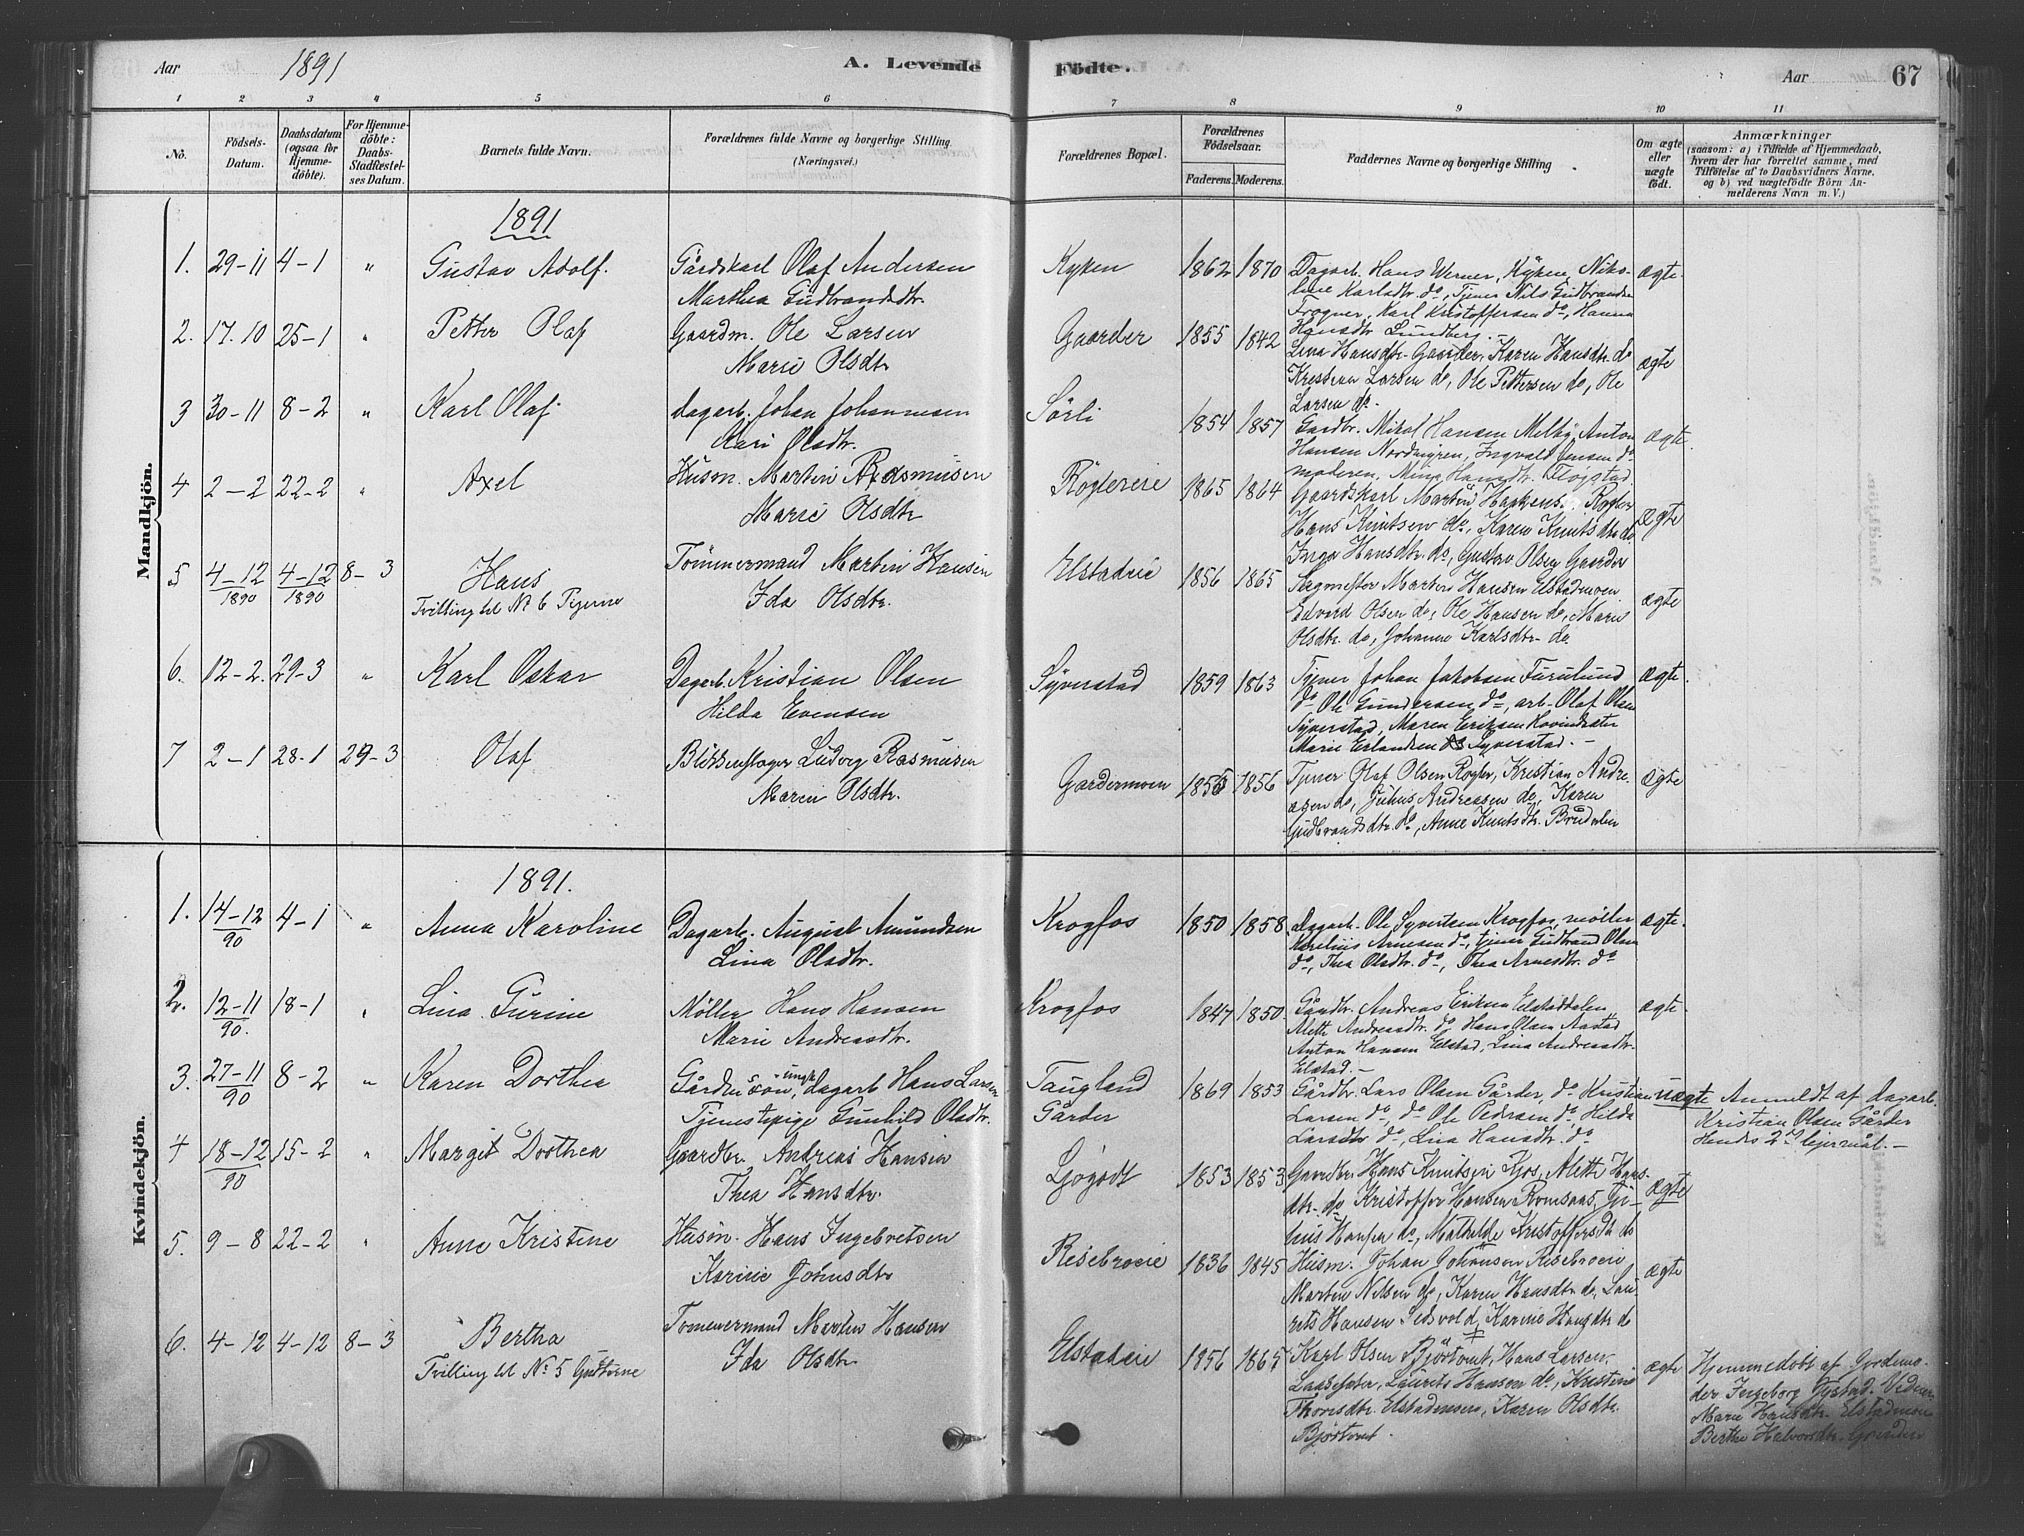 Aar 1891 A. Levende Födte. Aar 67
1 2 3 4 5 6 7 8 9 10 11
No.
Födsels-Datum.
Daabsdatum (ogsaa for Hjemmedöbte).
For Hjemmedöbte: Daabs-Stadfæstelses Datum.
Barnets fulde Navn.
Forældrenes fulde Navne og borgerlige Stilling (Næringsvei.)
Forældrenes Bopæl.
Forældrenes Födselsaar.
Faderens. Moderens.
Faddernes Navne og borgerlige Stilling
Om ægte eller uægte födt.
Anmærkninger
(saasom: a) i Tilfælde af Hjemmedaab,
hvem der har forrettet samme, med
Tilföielse af to Daabsvidners Navne,
og b) ved uægtefödte Börn An-
melderens Navn m. V.)
Mandkjön.
1891
1. 29-11 4-1 " Gustav Adolf. Gårdskarl Olaf Andersen
Marthea Gudbrandsdtr.
Kyken 1862 1870 Dagarb. Hans Werner, Kyken, Niko-
line Karlsdtr. do, Tjener Nils Gudbrandsen
Frogner, Karl Kristoffersen do, Hanna
Hansdtr Lundberg.
ægte.
2. 17.10 25-1 " Petter Olaf Gaardm. Ole Larsen
Marie Olsdtr
Gaarder 1855 1842 Lina Hansdtr. Gaarder, Karen Hansdtr. do
Kristian Larsen do, Ole Pettersen do, Ole
Larsen do.
ægte
3 30-11 8-2 " Karl Olaf dagarb. Johan Johannesen
Kari Olsdtr.
Sörli 1854 1857 Gardbr. Mikal Hansen Melby, Anton
Hansen Nordengren, Ingvald Jensen do
moderen, Hansdtr.
ægte.
4 2-2 22-2 " Axel Husm. Martin Rasmusen
Marie Olsdtr
Röglereie 1865 1864 Gaardskarl Martin Haakens. Rogler
Hans Knutsen do, Karen Knutsdtr do
Inga Hansdtr. do, Gustav Olsen Gaarder
ægte
5 4-12 1890 4-12 1890 8-3 Hans
Tvilling til No 6 Pigerne
Tömmermand Martin Hansen
Ida Olsdtr.
Elstadeie 1856 1865 Sagmester Martin Hansen Elstadmoen
Edvard Olsen do, Ole Hansen do, Marie
Olsdtr. do, Johanne Karlsdtr. do
ægte
6. 12-2. 29-3 " Karl Oskar Dagarb. Kristian Olsen
Hilda Evensen
Syverstad 1859 1863 Tjener Johan Jakobsen Furulund
do Ole Gundersen do, arb. Olaf Olsen
Syverstad, Maren Eriksen Hovindsæter
Marie Erlandsen Syverstad. -
ægte.
7 2-1 28-1 29-3 Olaf Blikkenslager Ludvig Rasmusen
Maren Olsdtr.
Gardermoen 1856 Tjener Olaf Olsen Rogler, Kristian Andre-
asen do, Julius Andreasen do, Karen
Gudbrandsdtr. do, Anne Knutsdtr.
ægte
Kvindekjön.
1891.
1. 14-12 90 4-1 " Anna Karoline Dagarb. August Amundsen
Lina Olsdtr.
Krogfos 1850 1858 Dagarb. Ole Syvertsen Krogfos, möller
Karelius Arnesen do, tjener Gudbrand Olsen
do, Thea Olsdtr. do, Thea Arnesdtr. do
ægte.
2. 12-11 90. 18-1 " Lina Turine Möller Hans Hansen
Marie Andreasdtr.
Krogfos 1847 1850 Gårdbr. Andreas Eriksen Elstaddalen
Alette Andreasdtr. do Hans Olsen Aastad
Anton Hansen Elstad, Lina Andreasdtr.
Elstad. -
ægte.
3. 27-11 90 8-2 " Karen Dorthea Gårdens sön, ungk. dagarb Hans Larsen
Tjenestepige Gunhild Olsdtr.
Taugland
Gårder
1869 1853 Gårdbr. Lars Olsen Gårder, do Kristian
Larsen do, do Ole Pedersen do, Hilda
Larsdtr do, Lina Hansdtr. do
uægte Anmeldt af dagarb.
Kristian Olsen Gårder
Hendes 2det leiermål. -
4 18-12 90 15-2 " Margit Dorthea Gaardbr. Andreas Hansen
Thea Hansdtr.
Ljögodt 1853 1853 Gaardbr. Hans Knutsen Kjos, Alette Hans-
dtr. do, Kristoffer Hansen Romsaas, Ju-
lius Hansen do, Mathilde Kristoffersdtr do
ægte
5. 9-8 22-2 " Anne Kristine Husm. Hans Ingebretsen
Karine Johnsdtr
Risebroeie 1836 1845 Husm. Johan Johanson Risebroeie
Martin Nilsen do, Karen Hansdtr. do, Lau-
rits Hansen Sedsvold, Karine Hansdtr do
ægte
6. 4-12 4-12 8-3 Bertha
Tvilling til No 5 Gutterne
Tömmermand Martin Hansen
Ida Olsdtr.
Elstadeie 1856 1865 Karl Olsen Björtomt, Hans Larsen
Laurits Hansen do, Kristine
Thorsdtr. Elstadensen, Karen Olsdtr.
Björtomt.
ægte Hjemmedöbt af Jordemo-
der Ingeborg Vidner
Marie Hansdtr. Elstadmoen
Berthe Halvorsdtr.